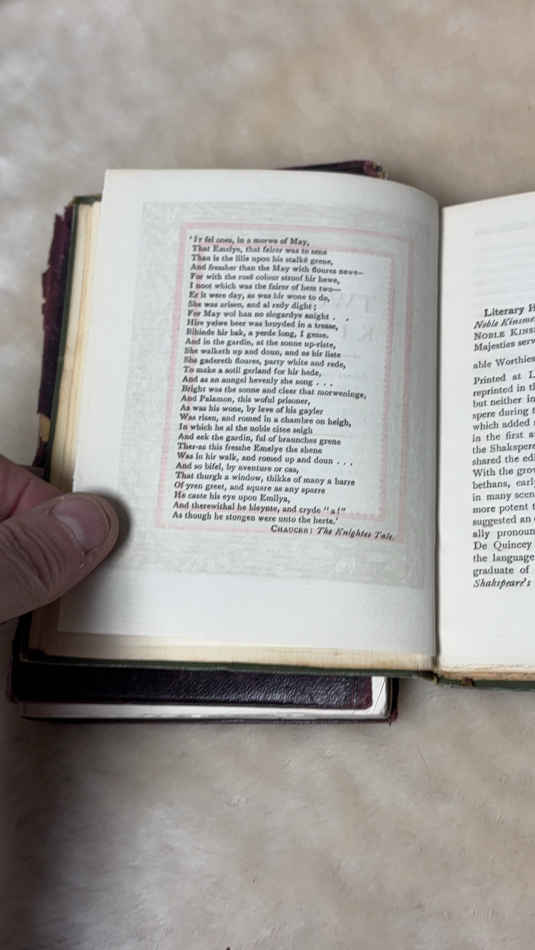 'It fel ones, in a morwe of May,
That Emelye, that fairer was to sene
Than is the lilie upon his stalkė grene,
And fressher than the May with floures newe—
For with the rosė colour stroof hir hewe,
I noot which was the fairer of hem two—
Er it were day, as was hir wone to do,
She was arisen, and al redy dight;
For May wol han no slogardye anight . .
Hire yelwe heer was broyded in a tresse,
Bihinde hir bak, a yerde long, I gesse.
And in the gardin, at the sonne up-riste,
She walketh up and doun, and as hir liste
She gadereth floures, party white and rede,
To make a sotil gerland for hir hede,
And as an aungel hevenly she song . . .
Bright was the sonne and cleer that morweninge,
And Palamon, this woful prisoner,
As was his wone, by leve of his gayler
Was risen, and romed in a chambre on heigh,
In which he al the noble citee seigh
And eek the gardin, ful of braunches grene
Ther-as this fresshe Emelye the shene
Was in hir walk, and romed up and doun . . .
And so bifel, by aventure or cas,
That thurgh a window, thikke of many a barre
Of yren greet, and square as any sparre
He caste his eye upon Emilya,
And therewithal he bleynte, and cryde "a!"
As though he stongen were unto the herte.'
CHAUCER: The Knightes Tale.
Literary
Noble Kinsme
NOBLE KINS
Majesties serv
able Worthies
Printed at
reprinted in t
but neither in
spere during
which added
in the first
the Shakspere
shared the edi
With the grov
bethans, earl
in many scen
more potent
suggested an
ally pronoun
De Quincey
the language
graduate of
Shakspeare's